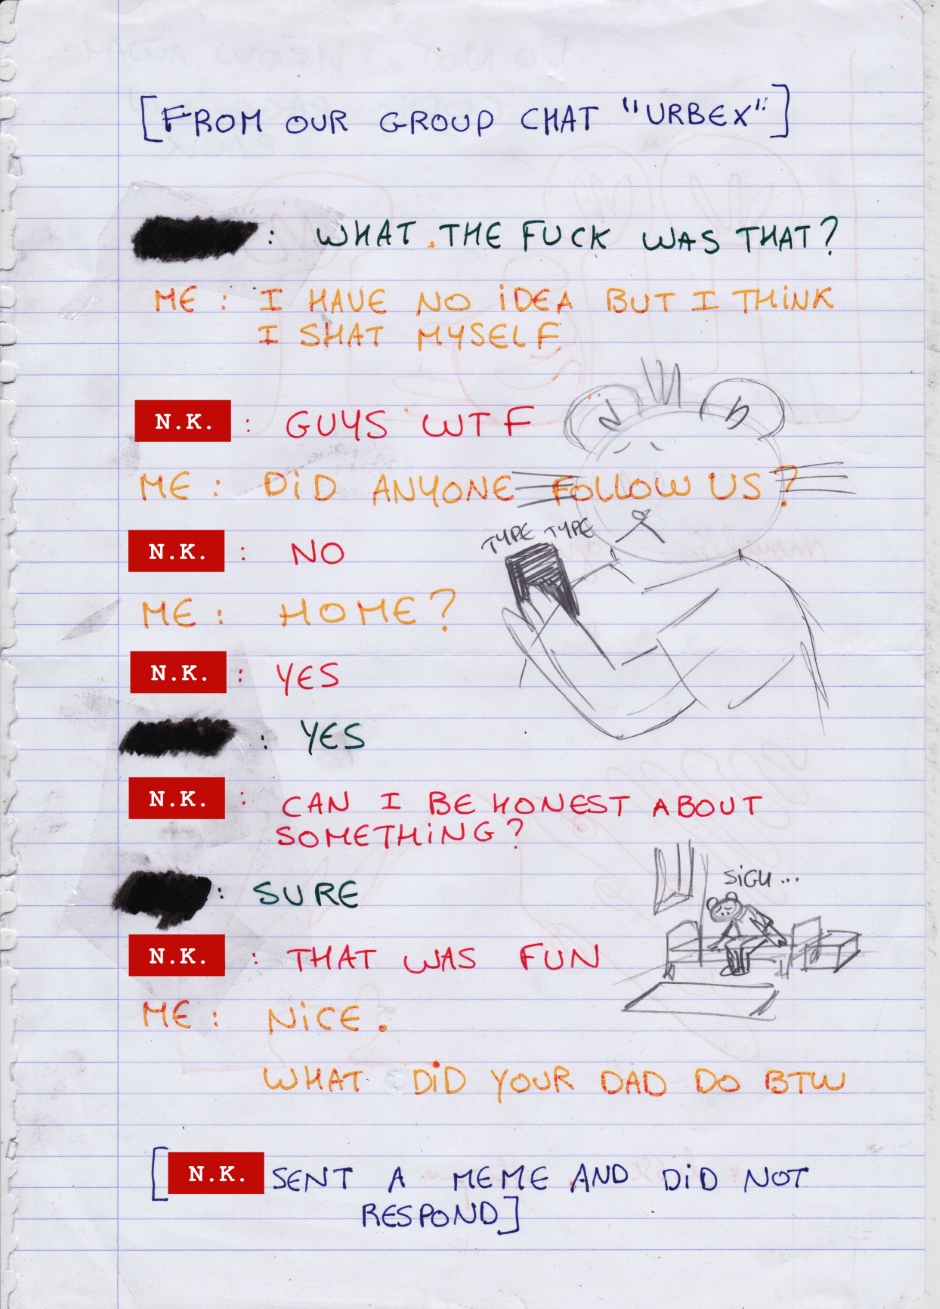 [FROM OUR GROUP CHAT "URBEX"]
: WHAT THE FUCK WAS THAT?
ME: I HAVE NO IDEA BUT I THINK
I SHAT MYSELF
N.K.: GUYS WTF
ME: DID ANYONE FOLLOW US?
TYPE TYPE
N.K.: NO
ME: HOME?
N.K.: YES
: YES
N.K.: CAN I BE HONEST ABOUT
SOMETHING?
SIGH...
: SURE
N.K.: THAT WAS FUN
ME: NICE.
WHAT DID YOUR DAD DO BTW
[N.K. SENT A MEME AND DID NOT
RESPOND]